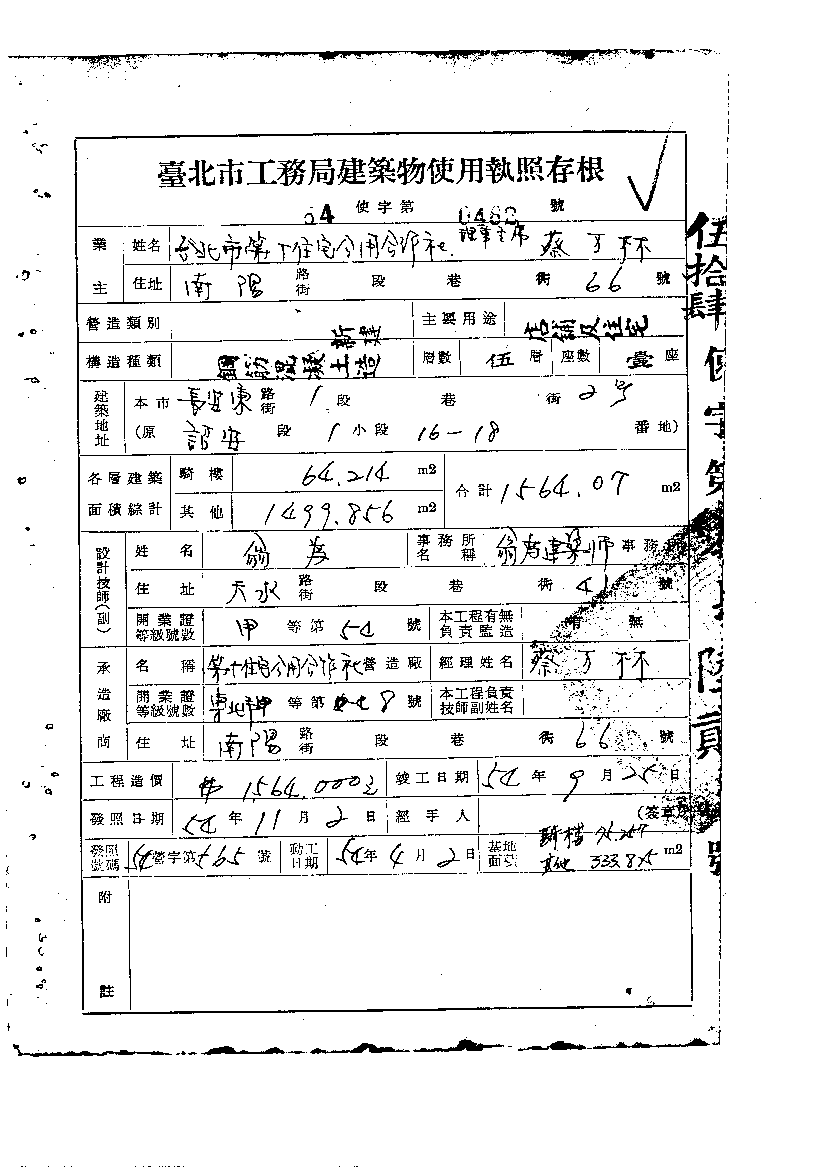 臺北市工務局建築物使用執照存根
54 使字第 0462 號
業主 姓名 台北市第十住宅公用合作社 理事主席 蔡万林
住址 南陽 路街 段 巷 街 66 號
營造類別 新建 主要用途 店鋪及住宅
構造種類 鋼筋混凝土造 層數 伍 層 座數 壹 座
建築地址 本市 長安東 路街 1 段 巷 街 2号
(原 詔安 段 1 小段 16-18 番地)
各層建築面積綜計 騎樓 64.214 m2 合計 1564.07 m2
其他 1499.856 m2
設計技師(副) 姓名 翁 事務所名稱 翁 建築师 事務
住址 天水 路街 段 巷 街 41 號
開業證等級號數 甲 等第 54 號 本工程有無負責監造 有 無
承造廠商 名稱 第十住宅公用合作社 營造廠 經理姓名 蔡万林
開業證等級號數 等第 8 號 本工程負責技師副姓名
住址 南陽 路街 段 巷 街 66 號
工程造價 1,564,000 竣工日期 54 年 9 月 25 日
發照日期 54 年 11 月 2 日 經手人 (簽章)
發照號碼 54 營字第 565 號 動工日期 54 年 4 月 2 日 基地面積 騎樓 333.875 m2
附註
伍拾肆使字第 陸貳號